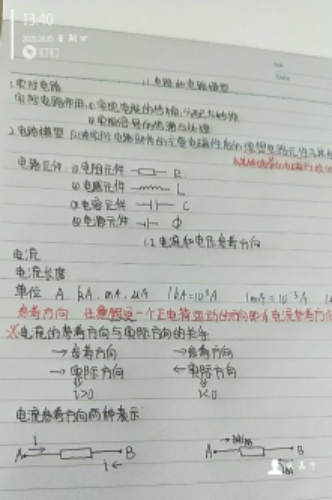 13:40
星期四
钉钉
1.1 电路和电路模型
1.实际电路
实际电路作用:①实现电能的传输、分配与转换
②实现信号的传递与处理
2.电路模型 反映实际电路部件的主要电磁性质的理想电路元件
电路元件 ①电阻元件 R
②电感元件 L
③电容元件 C
④电源元件
1.2 电流和电压参考方向
电流
电流
单位 A kA、mA、μA 1kA=10³A 1mA=10⁻³A
参考方向 任意假定一个正电荷运动的方向即为电流参考方向
电流的参考方向与实际方向的关系
→参考方向 →参考方向
→实际方向 ←实际方向
i>0 i<0
电流参考方向两种表示
i
A B A B
i